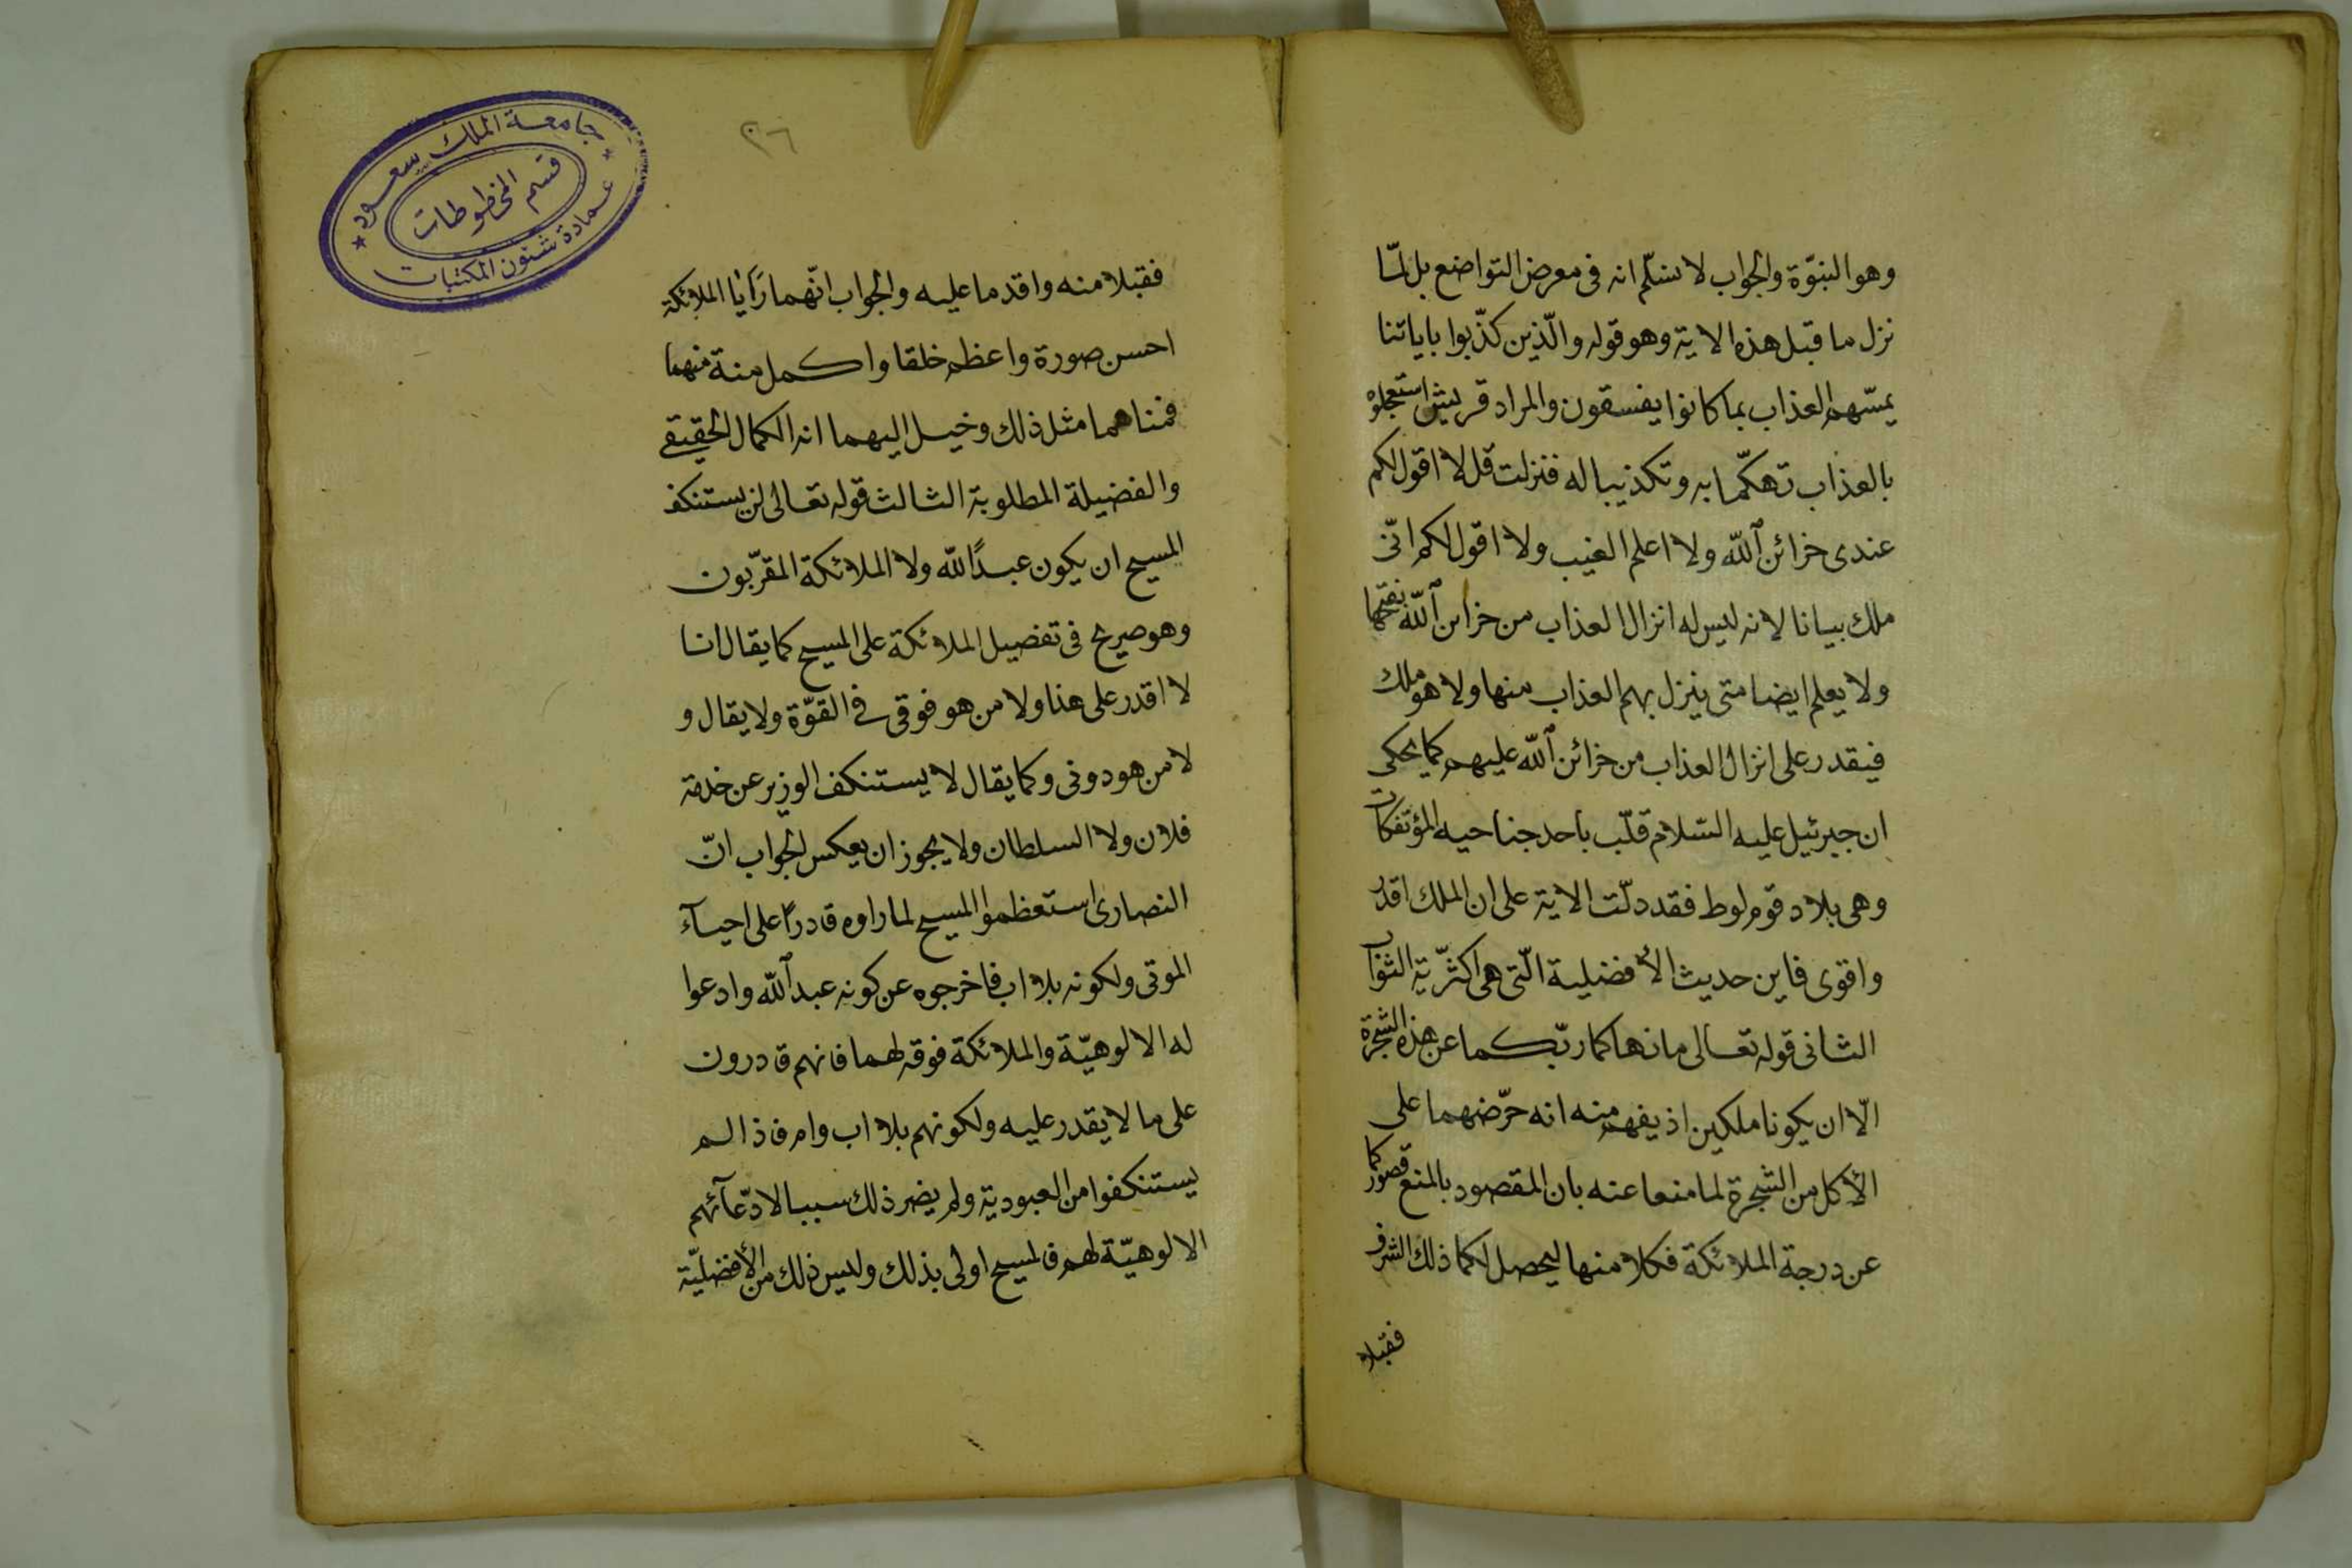 وهو النبوّة والجواب لا نسلّم انه فى معرض التواضع بل لمّا
نزل ما قبل هذه الاية وهو قوله والّذين كذّبوا باياتنا
يمسّهم العذاب بما كانوا يفسقون والمراد قريش استعجلوه
بالعذاب تهكّما به وتكذيبا له فنزلت قل لا اقول لكم
عندى خزائن الله ولا اعلم الغيب ولا اقول لكم انّى
ملك بيانا لانه ليس له انزال العذاب من خزائن الله بفتحها
ولا يعلم ايضا متى ينزل بهم العذاب منها ولا هو ملك
فيقدر على انزال العذاب من خزائن الله عليهم كما يحكى
ان جبرئيل عليه السّلام قلّب باحد جناحيه المؤتفكات
وهى بلاد قوم لوط فقد دلّت الاية على ان الملك اقدر
واقوى فاين حديث الأفضلية الّتى هى اكثرّية الثواب
الثانى قوله تعالى ما نهاكما ربّكما عن هذه الشجرة
الّا ان يكونا ملكين اذ يفهم منه انه حرّضهما على
الأكل من الشجرة لما منعا عنه بان المقصود بالمنع قصوركما
عن درجة الملائكة فكلا منها ليحصل لكما ذلك الشرف
فقبلا
٢٦
جامعة الملك سعود
قسم المخطوطات
عمادة شئون المكتبات
فقبلا منه واقدما عليه والجواب انّهما رَأَيا الملائكة
احسن صورة واعظم خلقا واكمل منة منهما
فمناهما مثل ذلك وخيل اليهما انه الكمال الحقيقى
والفضيلة المطلوبة الثالث قوله تعالى لن يستنكف
المسيح ان يكون عبدًا لله ولا الملائكة المقرّبون
وهو صريح فى تفضيل الملائكة على المسيح كما يقال انا
لا اقدر على هذا ولا من هو فوقى فى القوّة ولا يقال و
لا من هو دونى وكما يقال لا يستنكف الوزير عن خدمة
فلان ولا السلطان ولا يجوز ان يعكس الجواب انّ
النصارى استعظموا المسيح لما راوه قادرًا على احيآء
الموتى ولكونه بلا اب فاخرجوه عن كونه عبد الله وادعوا
له الالوهيّة والملائكة فوقه لهما فانهم قادرون
على ما لا يقدر عليه ولكونهم بلا اب وام فاذا لم
يستنكفوا من العبودية ولم يضر ذلك سببا لادّعآئهم
الالوهيّة لهم فالمسيح اولى بذلك وليس ذلك من الأفضليّة